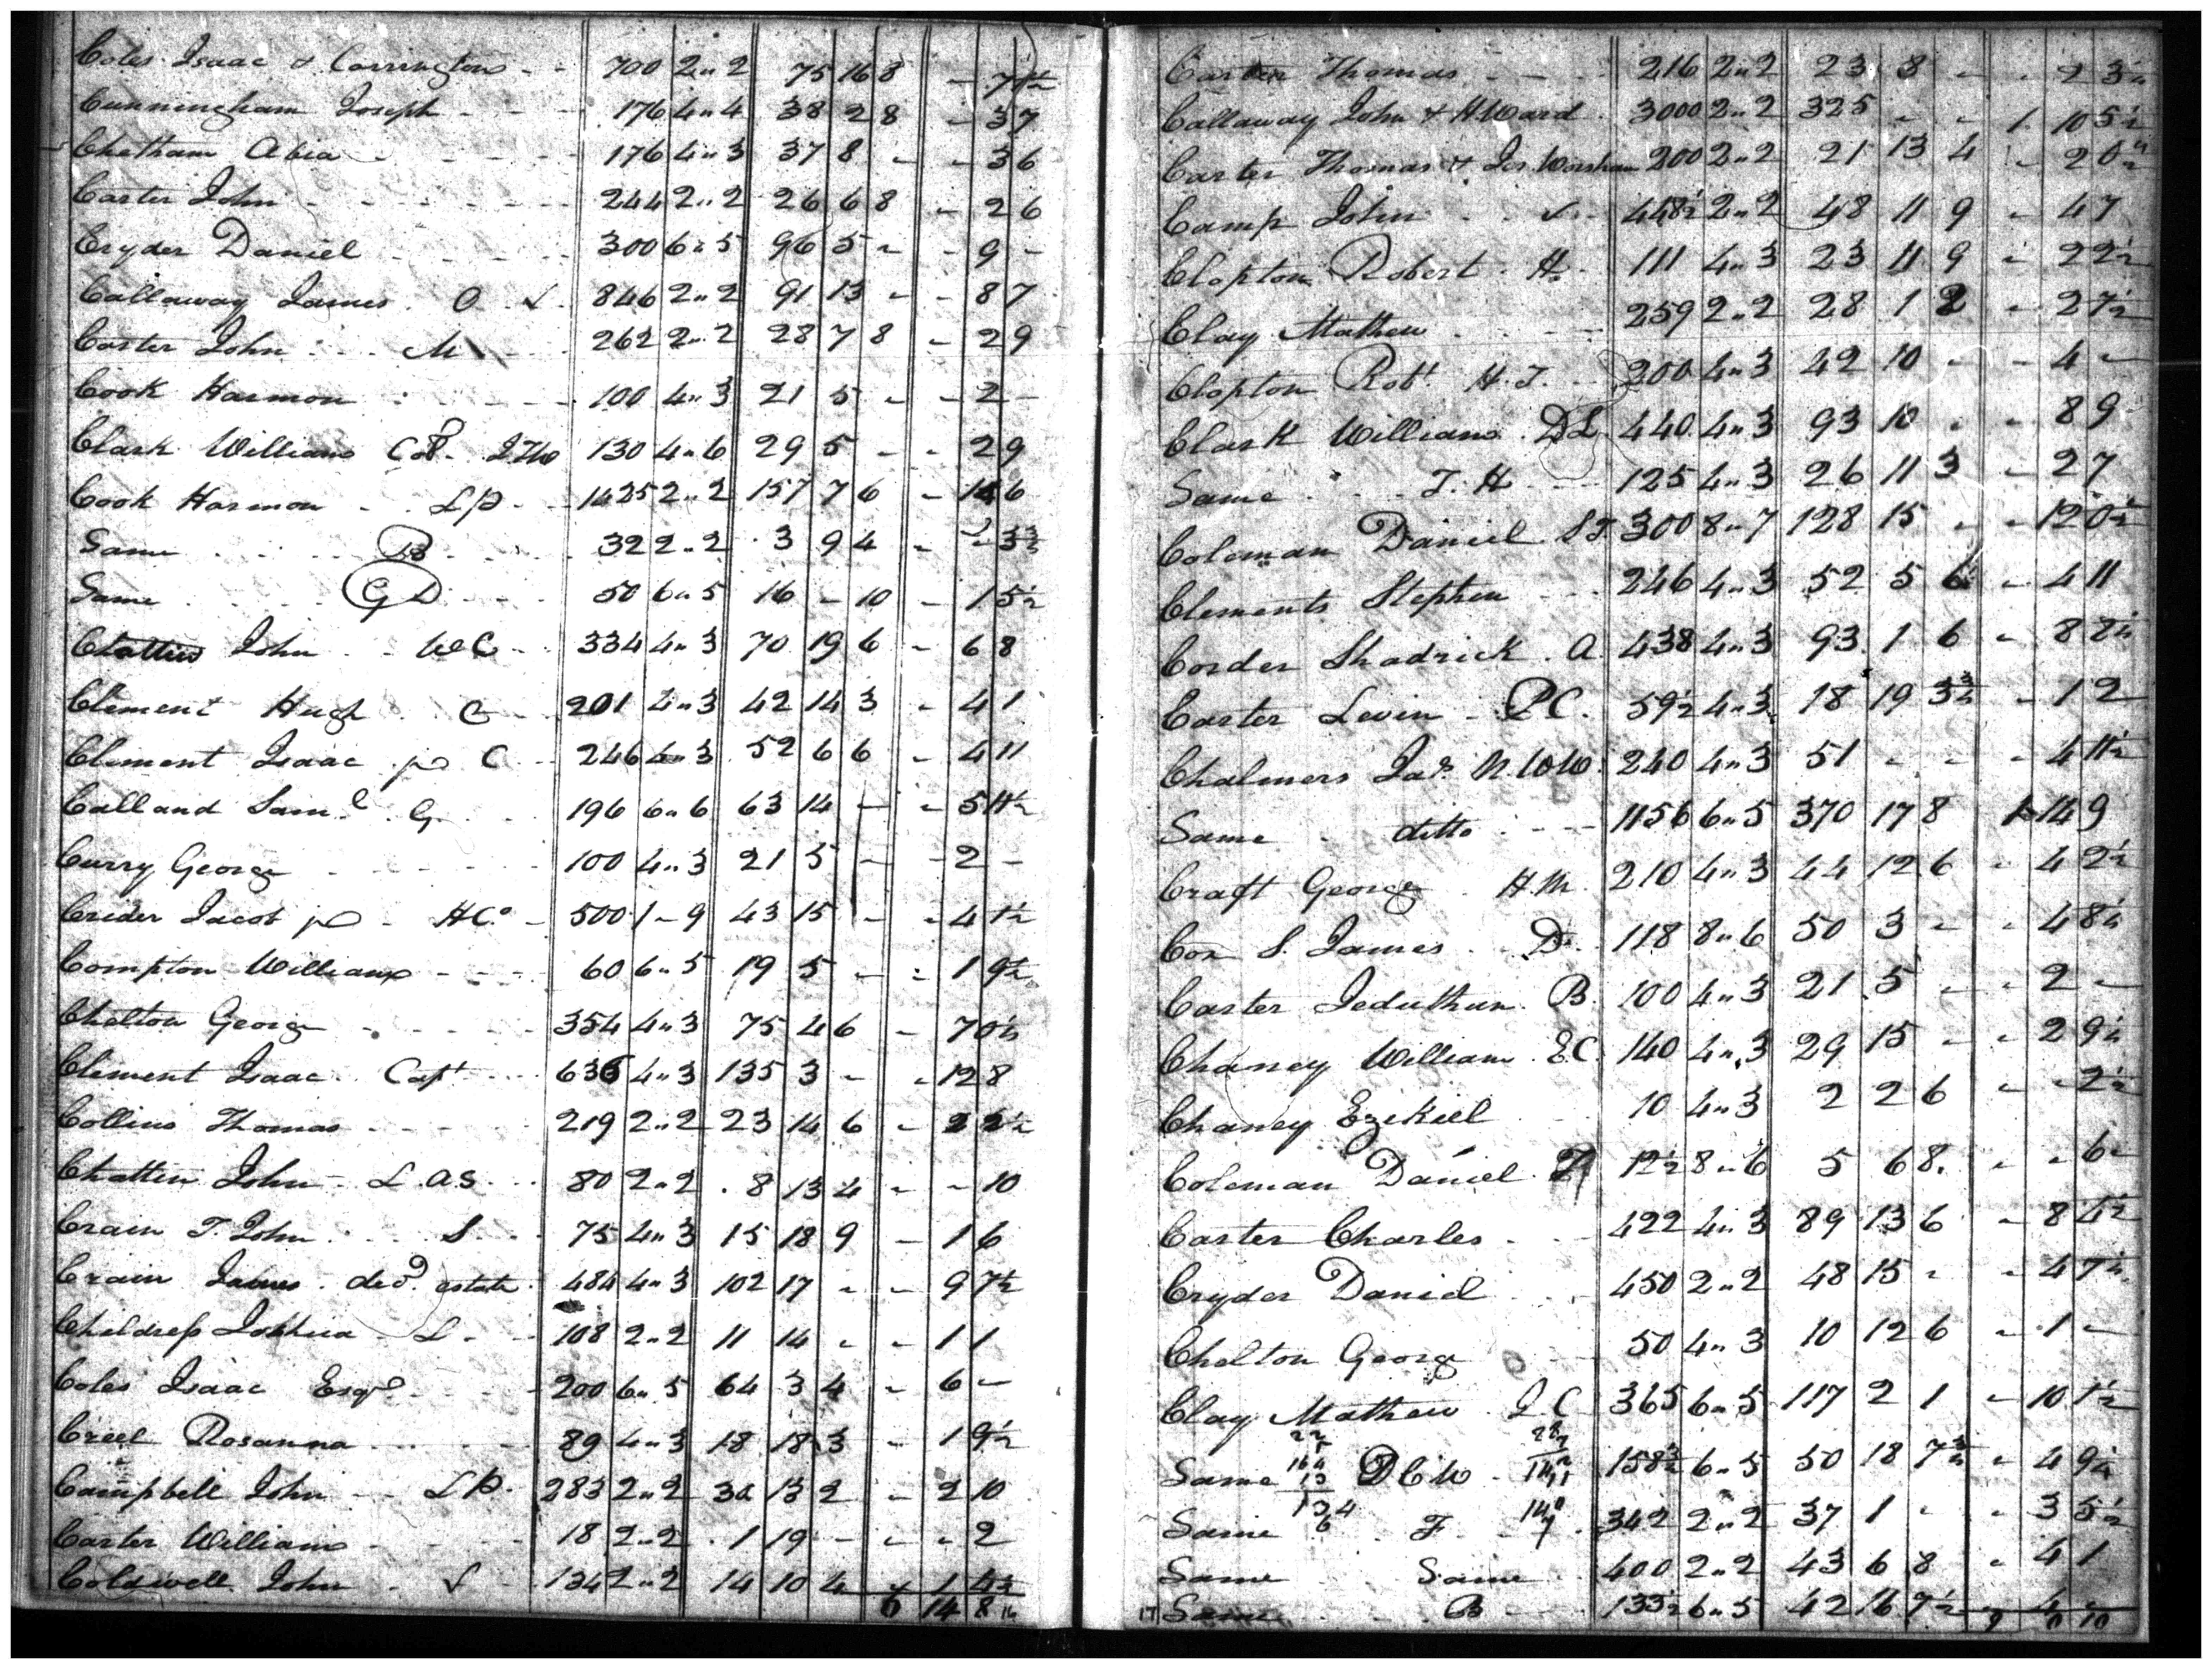 Coles Isaac & Carrington - - 700 2"2 75 16 8 - 7 1½
Cunningham Joseph - - - 176 4"4 38 2 8 - 3 7
Chetham Abia - - - - 176 4"3 37 8 - - 3 6
Carter John - - - - 244 2"2 26 6 8 - 2 6
Cryder Daniel - - - - 300 6"5 96 5 - - 9 -
Callaway James O ✓ 846 2"2 91 13 - - 8 7
Carter John M 262 2"2 28 7 8 - 2 9
Cook Harmon - - - 100 4"3 21 5 - - 2 -
Clark William 130 4"6 29 5 - - 2 9
Cook Harmon LP 1425 2"2 157 7 6 - 6
Same B 32 2"2 3 9 4 - -
Same G D 50 6"5 16 - 10 - 1 5½
Chattin John WC 334 4"3 70 19 6 - 6 8
Clement Hugh C 201 4"3 42 14 3 - 4 1
Clement Isaac jr C 246 4"3 52 6 6 - 4 11
Calland Saml. G 196 6"6 63 14 - - 5 11½
Curry George 100 4"3 21 5 - - 2 -
Crider Jacob jr - HCo - 500 1-9 43 15 - - 4 1½
Compton William - - - 60 6"5 19 5 - - 1 9½
Chelton George - - - 354 4"3 75 4 6 - 7 0½
Clement Isaac Capt - - 636 4"3 135 3 - - 12 8
Collins Thomas - - - 219 2"2 23 14 6 - 2 2½
Chattin John - L.a.S. 80 2"2 8 13 4 - - 10
Crain T. John S 75 4"3 15 18 9 - 1 6
Crain James decd. estate 484 4"3 102 17 - - 9 7½
Childress Joshua - L - 108 2"2 11 14 - - 1 1
Coles Isaac Esqr - - 200 6"5 64 3 4 - 6 -
Creel Rosanna 89 4"3 18 18 3 - 1 9½
Campbell John LP. 283 2"2 30 13 2 - 2 10
Carter William 18 2"2 1 19 - - - 2
Coldwell John - ✓ 134 2"2 14 10 4 1 4½
6 14 8
Carter Thomas - - - 216 2"2 23 8 - - 2 3¼
Callaway John & H Ward 3000 2"2 325 - - 1 10 5½
Carter Thomas & Jos Worsham 200 2"2 21 13 4 - 2 0½
Camp John ✓ 448½ 2"2 48 11 9 - 4 7
Clopton Robert H. 111 4"3 23 11 9 - 2 2½
Clay Mathew 259 2"2 28 1 2 - 2 7½
Clopton Robt. H.T. 200 4"3 42 10 - - 4 -
Clark William DL 440 4"3 93 10 - - 8 9
Same T. H 125 4"3 26 11 3 - 2 7
Coleman Daniel ST 300 8"7 128 15 - - 12 0½
Clements Stephen - - 246 4"3 52 5 6 - 4 11
Corder Shadrick A 438 4"3 93 1 6 - 8 8¼
Carter Levin - PC. 59½ 4"3 18 19 3¾ - 1 2
Chalmers Jas. N. WW. 240 4"3 51 - - - 4 11½
Same ditto - - - 1156 6"5 370 17 8 1 14 9
Craft George H.M. 210 4"3 44 12 6 - 4 2½
Cox S. James D. 118 8"6 50 3 - - 4 8¼
Carter Jeduthun B. 100 4"3 21 5 - - 2 -
Chaney William EC. 140 4"3 29 15 - - 2 9¼
Chaney Ezekiel 10 4"3 2 2 6 - - 2½
Coleman Daniel 12½ 8"6 5 6 8 - - 6
Carter Charles - - 422 4"3 89 13 6 - 8 4½
Cryder Daniel 450 2"2 48 15 - - 4 7¼
Chelton George 50 4"3 10 12 6 - 1 -
Clay Mathew LC 365 6"5 117 2 1 - 10 1½
Same DCW 158¾ 6"5 50 18 7¾ - 4 9¼
Same F 342 2"2 37 1 - - 3 5½
Same Same 400 2"2 43 6 8 - 4 1
Same B 133½ 6"5 42 16 7½ 4
9 0 10